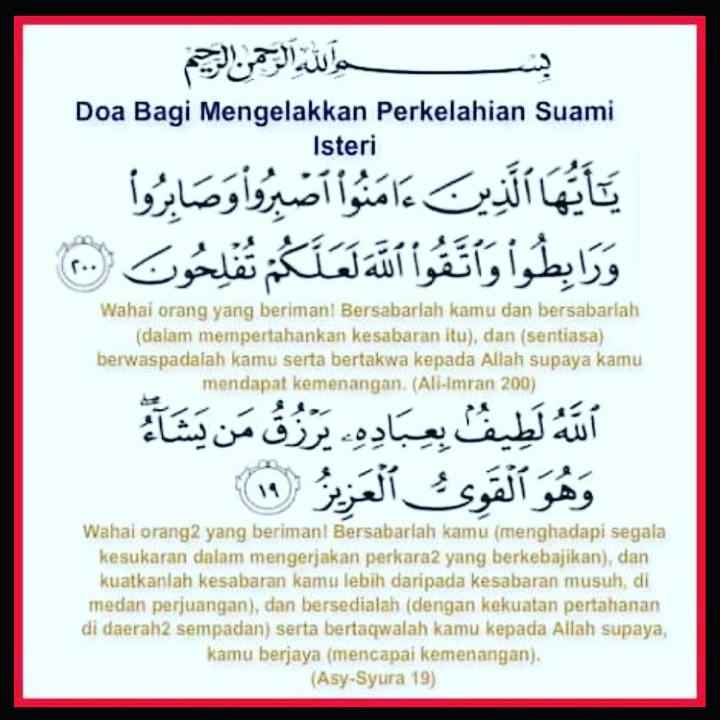 بِسْمِ اللَّهِ الرَّحْمَٰنِ الرَّحِيمِ
Doa Bagi Mengelakkan Perkelahian Suami
Isteri
يَـٰٓأَيُّهَا ٱلَّذِينَ ءَامَنُوا۟ ٱصْبِرُوا۟ وَصَابِرُوا۟
وَرَابِطُوا۟ وَٱتَّقُوا۟ ٱللَّهَ لَعَلَّكُمْ تُفْلِحُونَ ٢٠٠
Wahai orang yang beriman! Bersabarlah kamu dan bersabarlah
(dalam mempertahankan kesabaran itu), dan (sentiasa)
berwaspadalah kamu serta bertakwa kepada Allah supaya kamu
mendapat kemenangan. (Ali-Imran 200)
ٱللَّهُ لَطِيفٌۢ بِعِبَادِهِۦ يَرْزُقُ مَن يَشَآءُ ۖ
وَهُوَ ٱلْقَوِىُّ ٱلْعَزِيزُ ١٩
Wahai orang2 yang beriman! Bersabarlah kamu (menghadapi segala
kesukaran dalam mengerjakan perkara2 yang berkebajikan), dan
kuatkanlah kesabaran kamu lebih daripada kesabaran musuh, di
medan perjuangan), dan bersedialah (dengan kekuatan pertahanan
di daerah2 sempadan) serta bertaqwalah kamu kepada Allah supaya,
kamu berjaya (mencapai kemenangan).
(Asy-Syura 19)